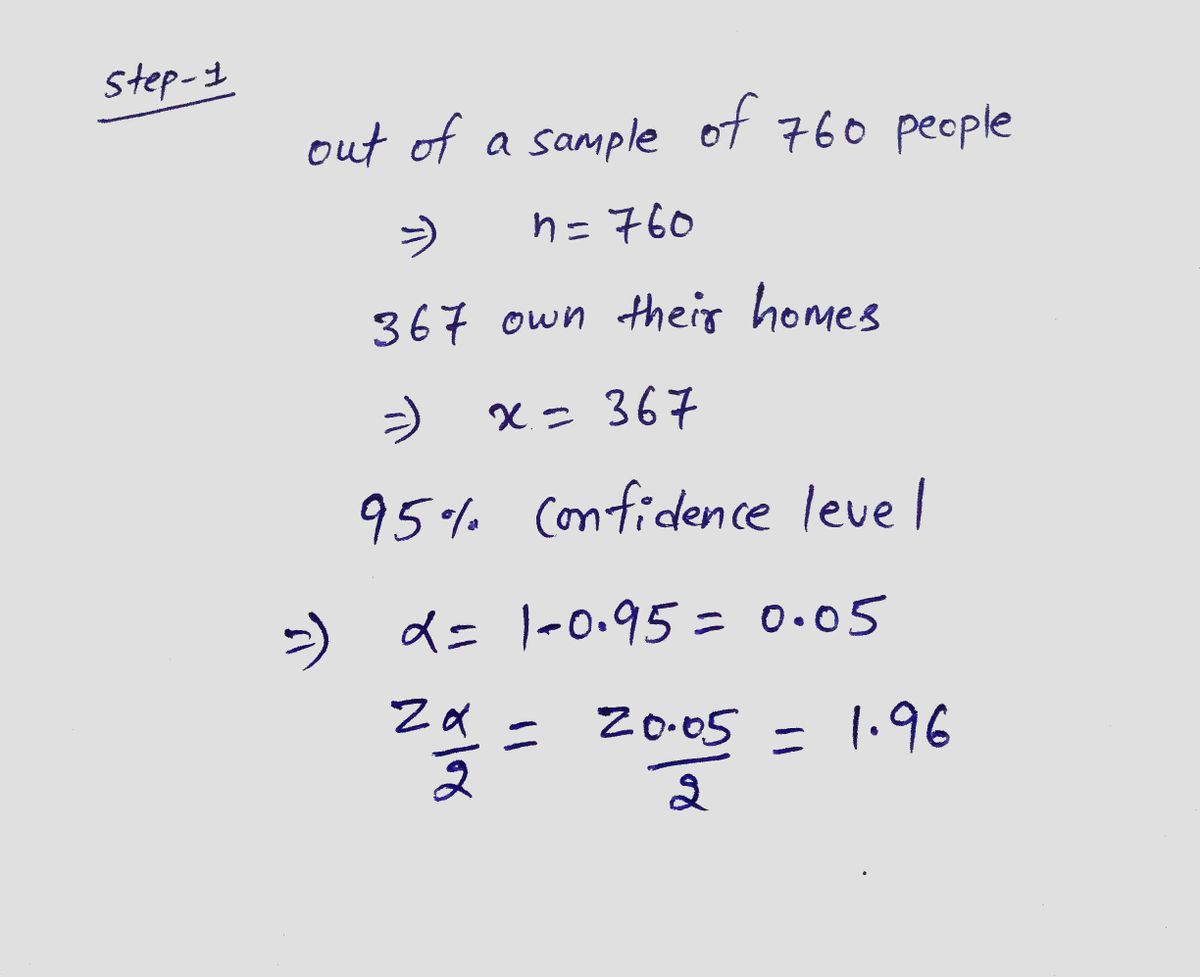 Step-1
out of a sample of 760 people
⇒ n = 760
367 own their homes
⇒ x = 367
95% Confidence level
⇒ α = 1-0.95 = 0.05
Zα/2 = Z0.05/2 = 1.96